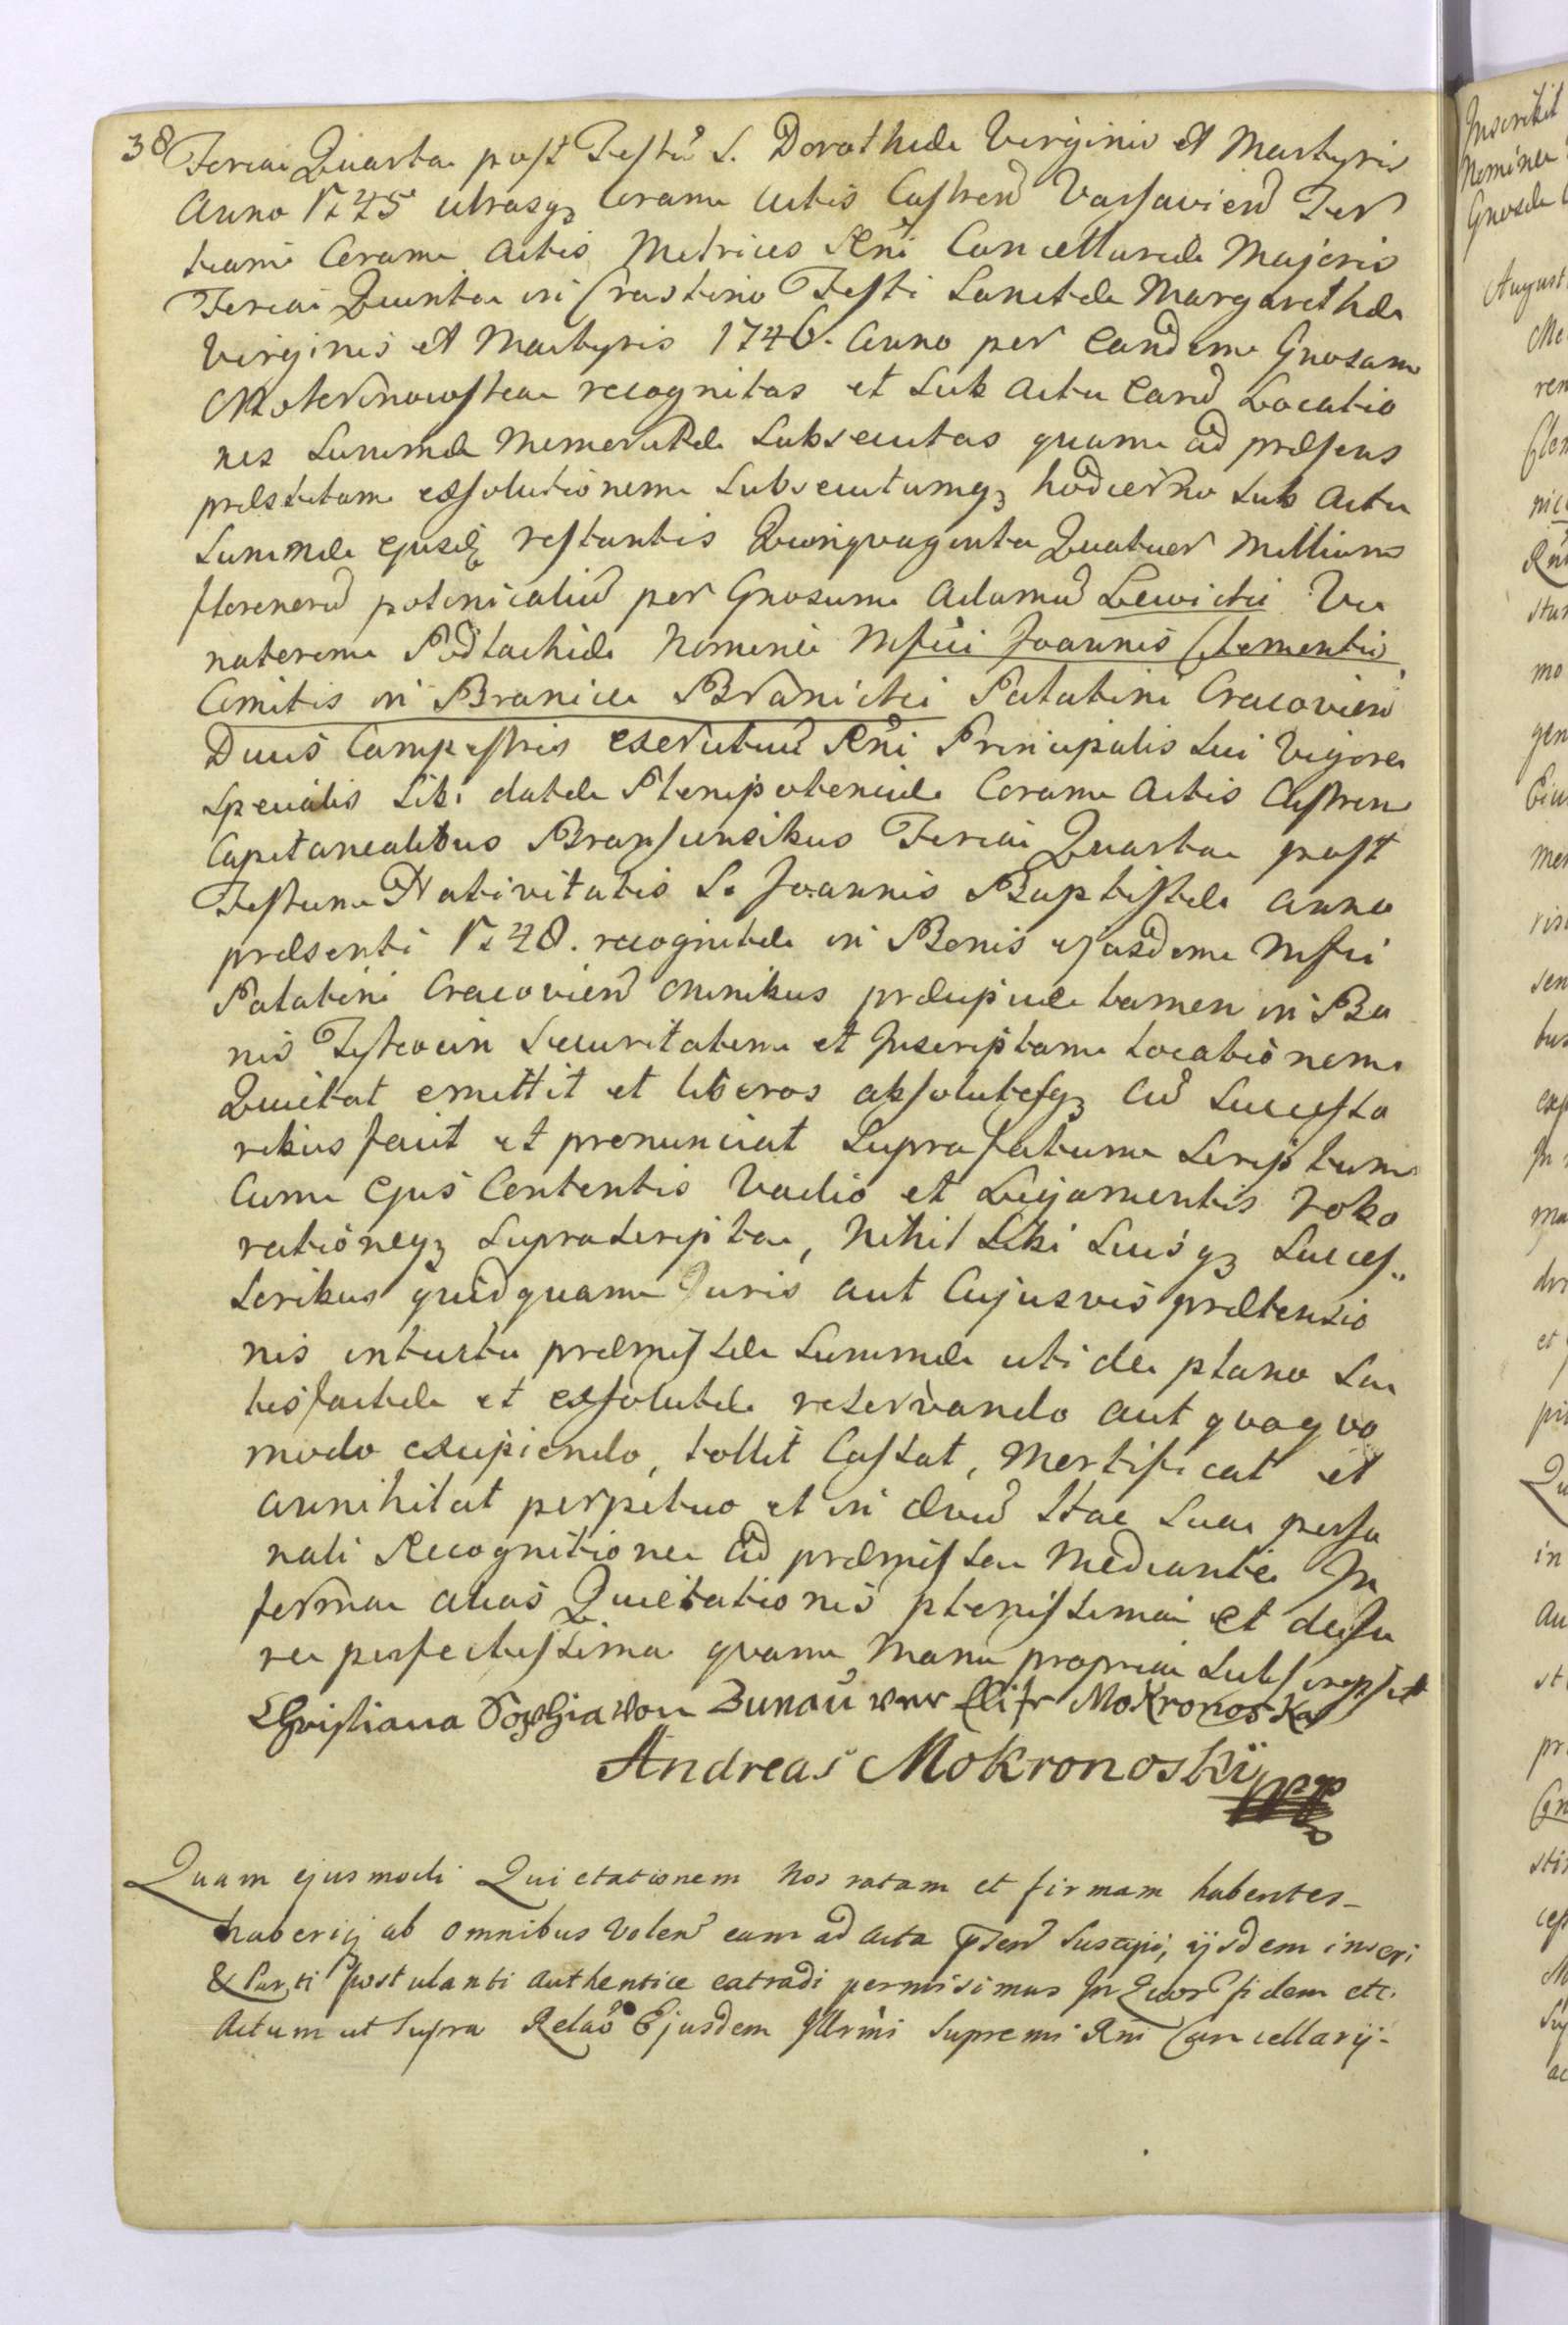 38
Feria Quarta post Festũ S. Dorotheae Virginis et Martyris
Anno 1745 utrasqȝ Coram Actis Castren̄ Varsavien̄ Ter
tiam Coram Actis Metrices Rñi Cancellariae Majoris
Feria Quinta in Crastino Festi Sanctae Margarethae
Virginis et Martyris 1746. Anno per Eandem Gnosam
Mokronowska recognitas et sub Actu Earũd Locatio
nes Summae Memoratae subsecutas quam ad praesens
praestitam exsolutionem subsecutamqȝ hodierno sub Actu
Summae ejusdȩ restantis Quinquaginta Quatuor Millium
florenorũ polonicaliũ per Gnosum Adamũ Lewicki Ve
natorem Podlachiae Nomine Mfici Joannis Clementis
Comitis in Branice Branicki Palatini Cracovien̄
Ducis Campestris exercituũ Rñi Principalis sui Vigore
specialis sibi datae Plenipotenciae Coram Actis Castren
Capitanealibus Branscensibus Feria Quarta post
Festum Nativitatis S. Joannis Baptistae Anno
praesenti 1748. recognitae in Bonis ejusdem Mfici
Palatini Cracovien̄ omnibus praecipue tamen in Bo
nis Tykocin Securitatem et Inscriptam Locationem
Quietat emittit et liberos absolutosqȝ Cũ Successo
ribus facit et pronunciat Suprafatum Scriptum
Cum Ejus Contentis Vadio et Ligamentis robo
rationeqȝ Suprascripta, Nihil Sibi Suisqȝ Succes„
soribus quidquam Juris aut Cujusvis praetensio
nis intuitu praemissae Summae uti de plano Sa
tisfactae et exsolutae reservando aut quoquo
modo excipiendo, tollit Cassat, Mortificat et
annihilat perpetuo et in aevũ Hac Sua perso
nali Recognitione ad praemissa Mediante In
forma alias Quietationis plenissima et de Ju
re perfectissima quam Manu propria subscripsit
Christiana Sophia von Bunau Mokronoska
Andreas Mokronoskï mpp
Quam ejusmodi Quietationem Nos ratam et firmam habentes
haberiqȝ ab omnibus volen̄ eam ad acta p̄sen̄ suscipi, ijsdem inscri
& Parti Postulanti Authentice extradi permisimus In Quor̃ fidem etc.
Actum ut supra Relaõ Ejusdem Illrmi Supremi Rni Cancellarij-
Inscribit
Nomine
August